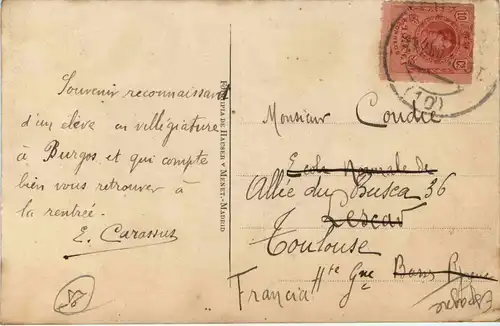 Souvenir reconnaissant
d'un élève en villégiature
à Burgos et qui compte
bien vous retrouver à
la rentrée.
E. Carassus
FOTOTIPIA DE HAUSER Y MENET.-MADRID
Monsieur Coudie
Ecole Normale de
Allée du Busca 36
Lescar
Toulouse
Hte Gne
Francia
Espagne